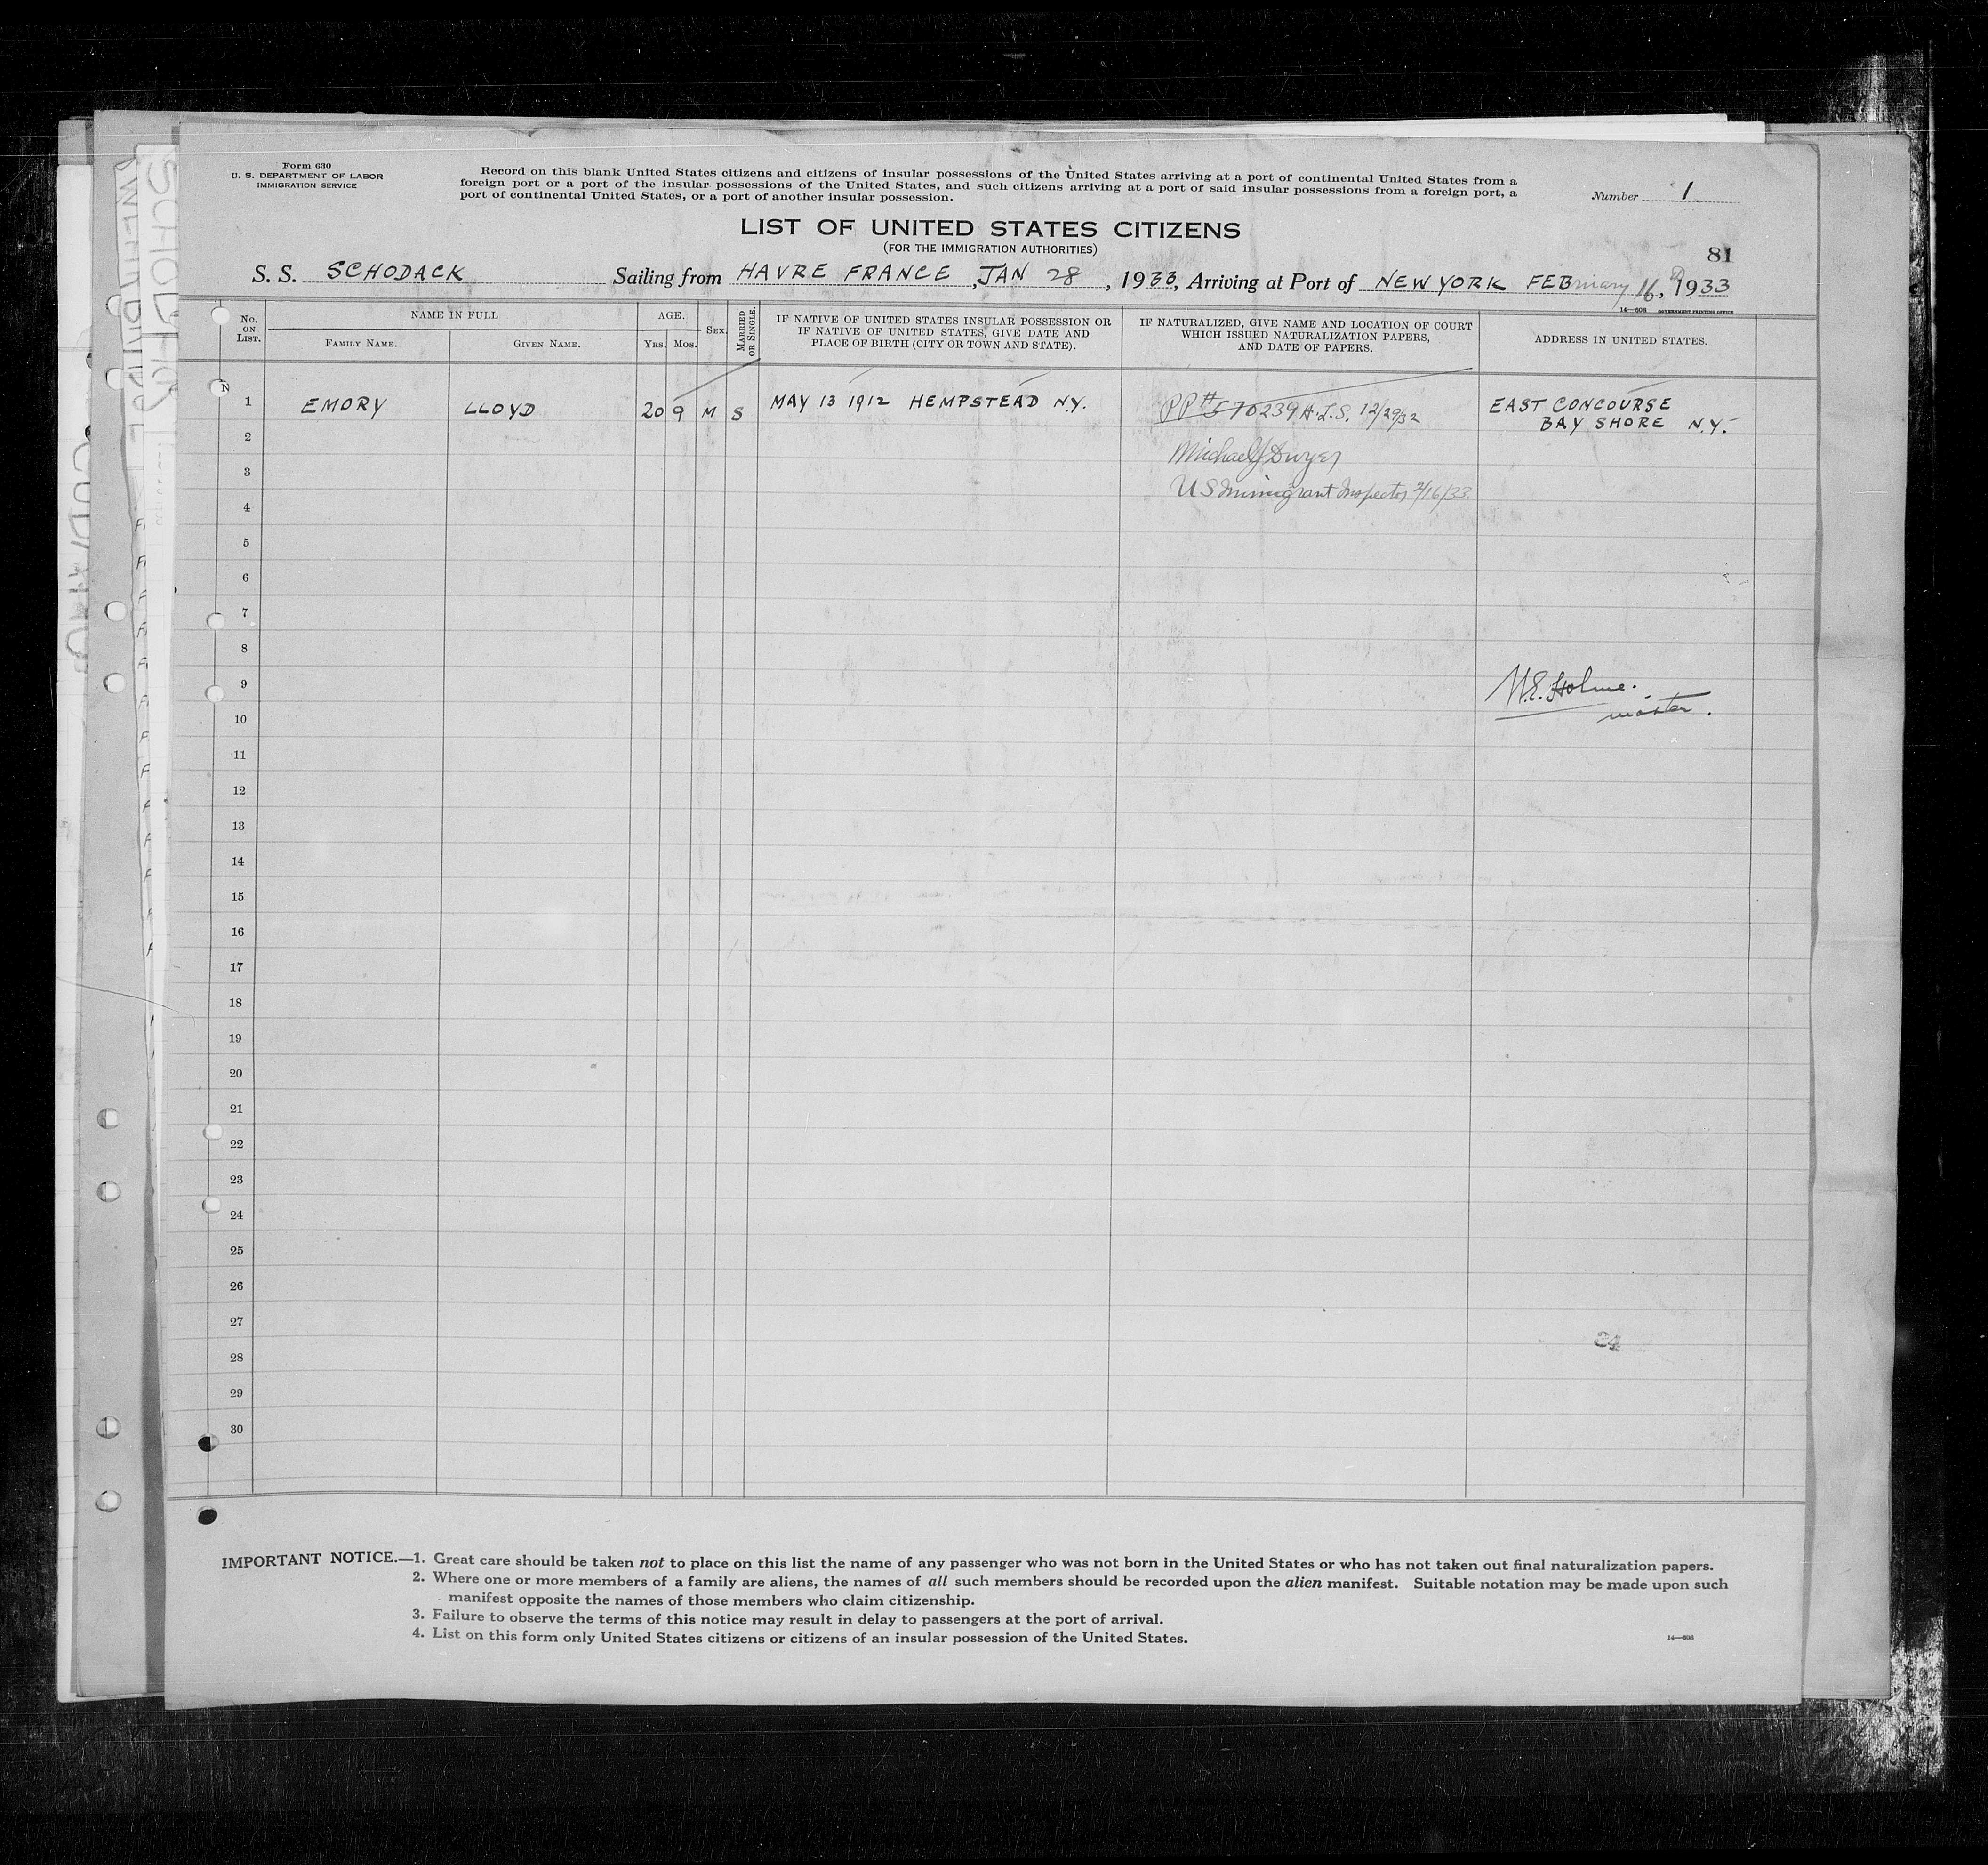 Form 630
U. S. DEPARTMENT OF LABOR
IMMIGRATION SERVICE
Record on this blank United States citizens and citizens of insular possessions of the United States arriving at a port of continental United States from a
foreign port or a port of the insular possessions of the United States, and such citizens arriving at a port of said insular possessions from a foreign port, a
port of continental United States, or a port of another insular possession.
Number 1
LIST OF UNITED STATES CITIZENS
(FOR THE IMMIGRATION AUTHORITIES)
81
S. S. SCHODACK Sailing from HAVRE FRANCE, JAN 28, 1933, Arriving at Port of NEW YORK FEBruary 16, 1933
14—608 GOVERNMENT PRINTING OFFICE
No. ON LIST.
NAME IN FULL
FAMILY NAME.
GIVEN NAME.
AGE.
YRS. MOS.
SEX.
MARRIED OR SINGLE.
IF NATIVE OF UNITED STATES INSULAR POSSESSION OR
IF NATIVE OF UNITED STATES, GIVE DATE AND
PLACE OF BIRTH (CITY OR TOWN AND STATE).
IF NATURALIZED, GIVE NAME AND LOCATION OF COURT
WHICH ISSUED NATURALIZATION PAPERS,
AND DATE OF PAPERS.
ADDRESS IN UNITED STATES.
N
1 EMORY LLOYD 20 9 M S MAY 13 1912 HEMPSTEAD N.Y. PP# 570239 12/29/32 EAST CONCOURSE
BAY SHORE N.Y.
2
Michael J Dwyer
3
US Immigrant Inspector 2/16/33
4
5
6
7
8
9
Holme.
master.
10
11
12
13
14
15
16
17
18
19
20
21
22
23
24
25
26
27
24
28
29
30
IMPORTANT NOTICE.—1. Great care should be taken not to place on this list the name of any passenger who was not born in the United States or who has not taken out final naturalization papers.
2. Where one or more members of a family are aliens, the names of all such members should be recorded upon the alien manifest. Suitable notation may be made upon such
manifest opposite the names of those members who claim citizenship.
3. Failure to observe the terms of this notice may result in delay to passengers at the port of arrival.
4. List on this form only United States citizens or citizens of an insular possession of the United States.
14—608